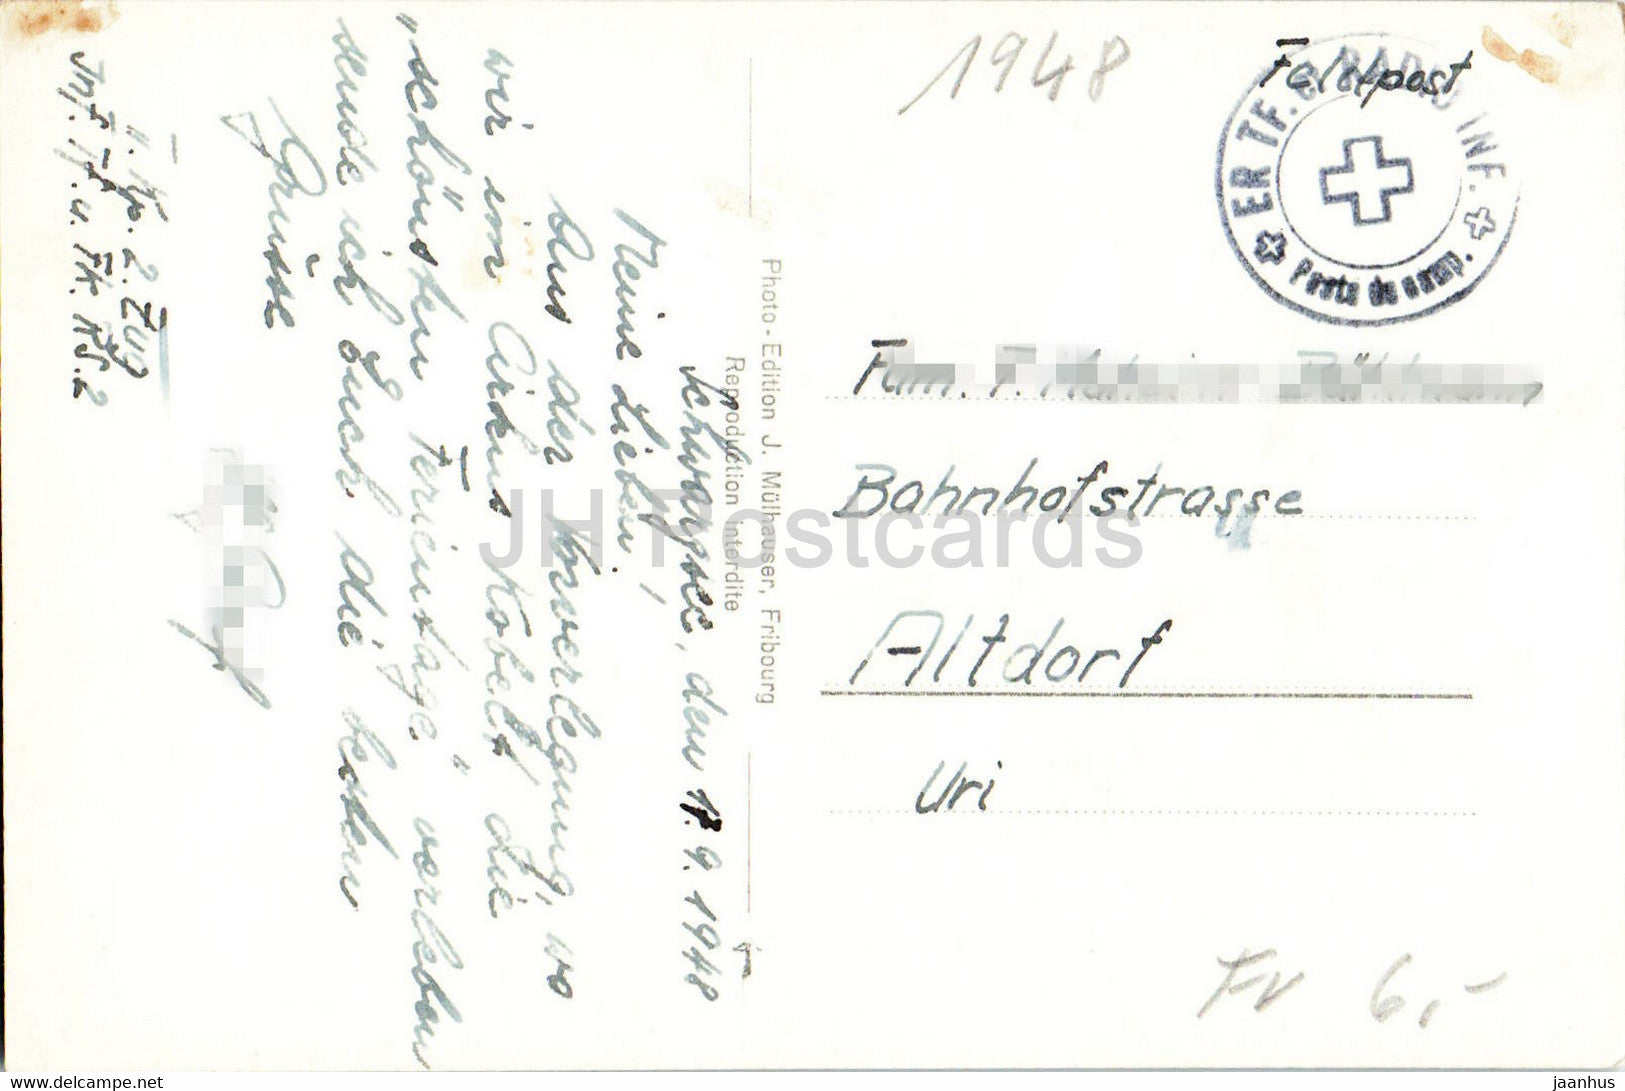 1948
Feldpost
ER TF. & RADIO INF.
Poste de camp.
Fam. F.
Bahnhofstrasse
Altdorf
Uri
Fr 6,-
Photo-Edition J. Mülhauser, Fribourg
Reproduction interdite
Schwarzsee, den 17.9.1948
Meine Lieben!
Aus der Vorverlegung, wo
wir im Cirkus Kobelt die
"schönsten Ferientage" verleben
sende ich Euch die besten
Grüsse
II. Kp. 2. Zug
Inf. Tf. u. Fk. RS. 2
JH Postcards
www.delcampe.net
jaanhus